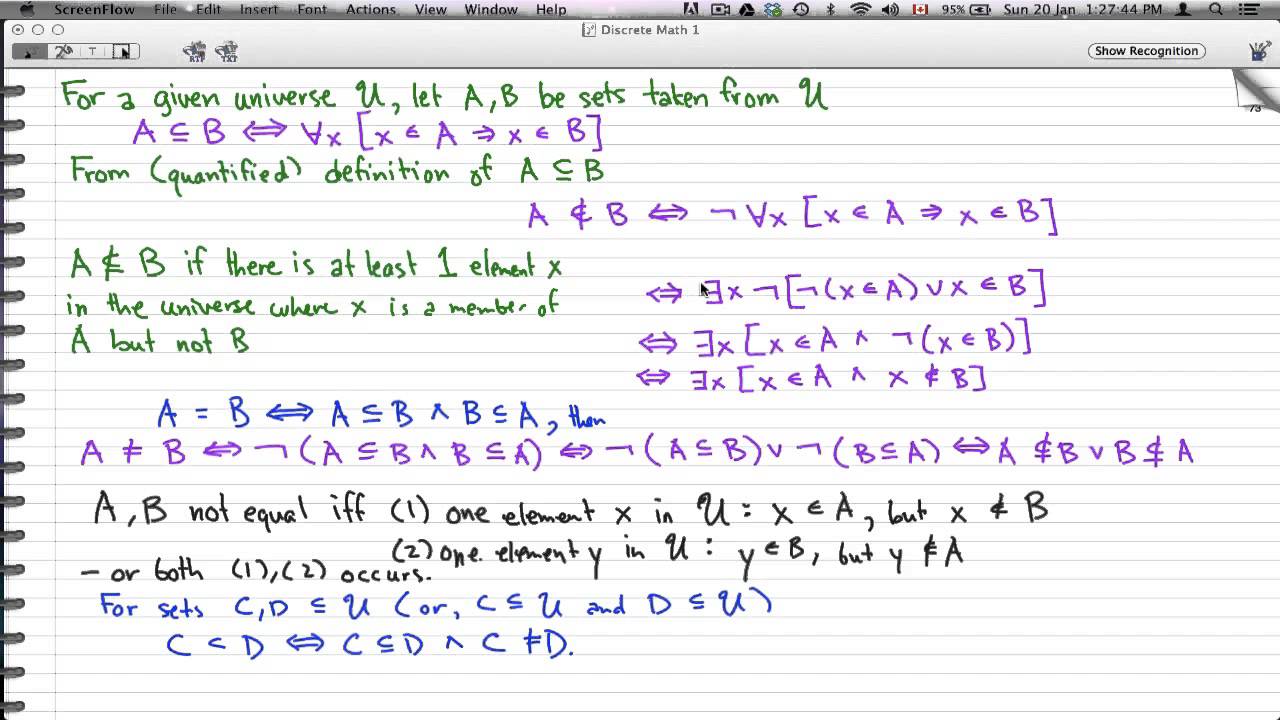 ScreenFlow File Edit Insert Font Actions View Window Help 95% Sun 20 Jan 1:27:44 PM
Discrete Math 1
T RTF TXT Show Recognition
73
For a given universe 𝒰, let A, B be sets taken from 𝒰
A ⊆ B ⟺ ∀x [x ∈ A ⇒ x ∈ B]
From (quantified) definition of A ⊆ B
A ⊄ B ⟺ ¬ ∀x [x ∈ A ⇒ x ∈ B]
A ⊈ B if there is at least 1 element x
in the universe where x is a member of
A but not B
⟺ ∃x ¬[¬(x ∈ A) ∨ x ∈ B]
⟺ ∃x [x ∈ A ∧ ¬(x ∈ B)]
⟺ ∃x [x ∈ A ∧ x ∉ B]
A = B ⟺ A ⊆ B ∧ B ⊆ A, then
A ≠ B ⟺ ¬(A ⊆ B ∧ B ⊆ A) ⟺ ¬(A ⊆ B) ∨ ¬(B ⊆ A) ⟺ A ⊈ B ∨ B ⊈ A
A, B not equal iff (1) one element x in 𝒰 : x ∈ A, but x ∉ B
(2) one element y in 𝒰 : y ∈ B, but y ∉ A
– or both (1),(2) occurs.
For sets C, D ⊆ 𝒰 (or, C ⊆ 𝒰 and D ⊆ 𝒰)
C ⊂ D ⟺ C ⊆ D ∧ C ≠ D.